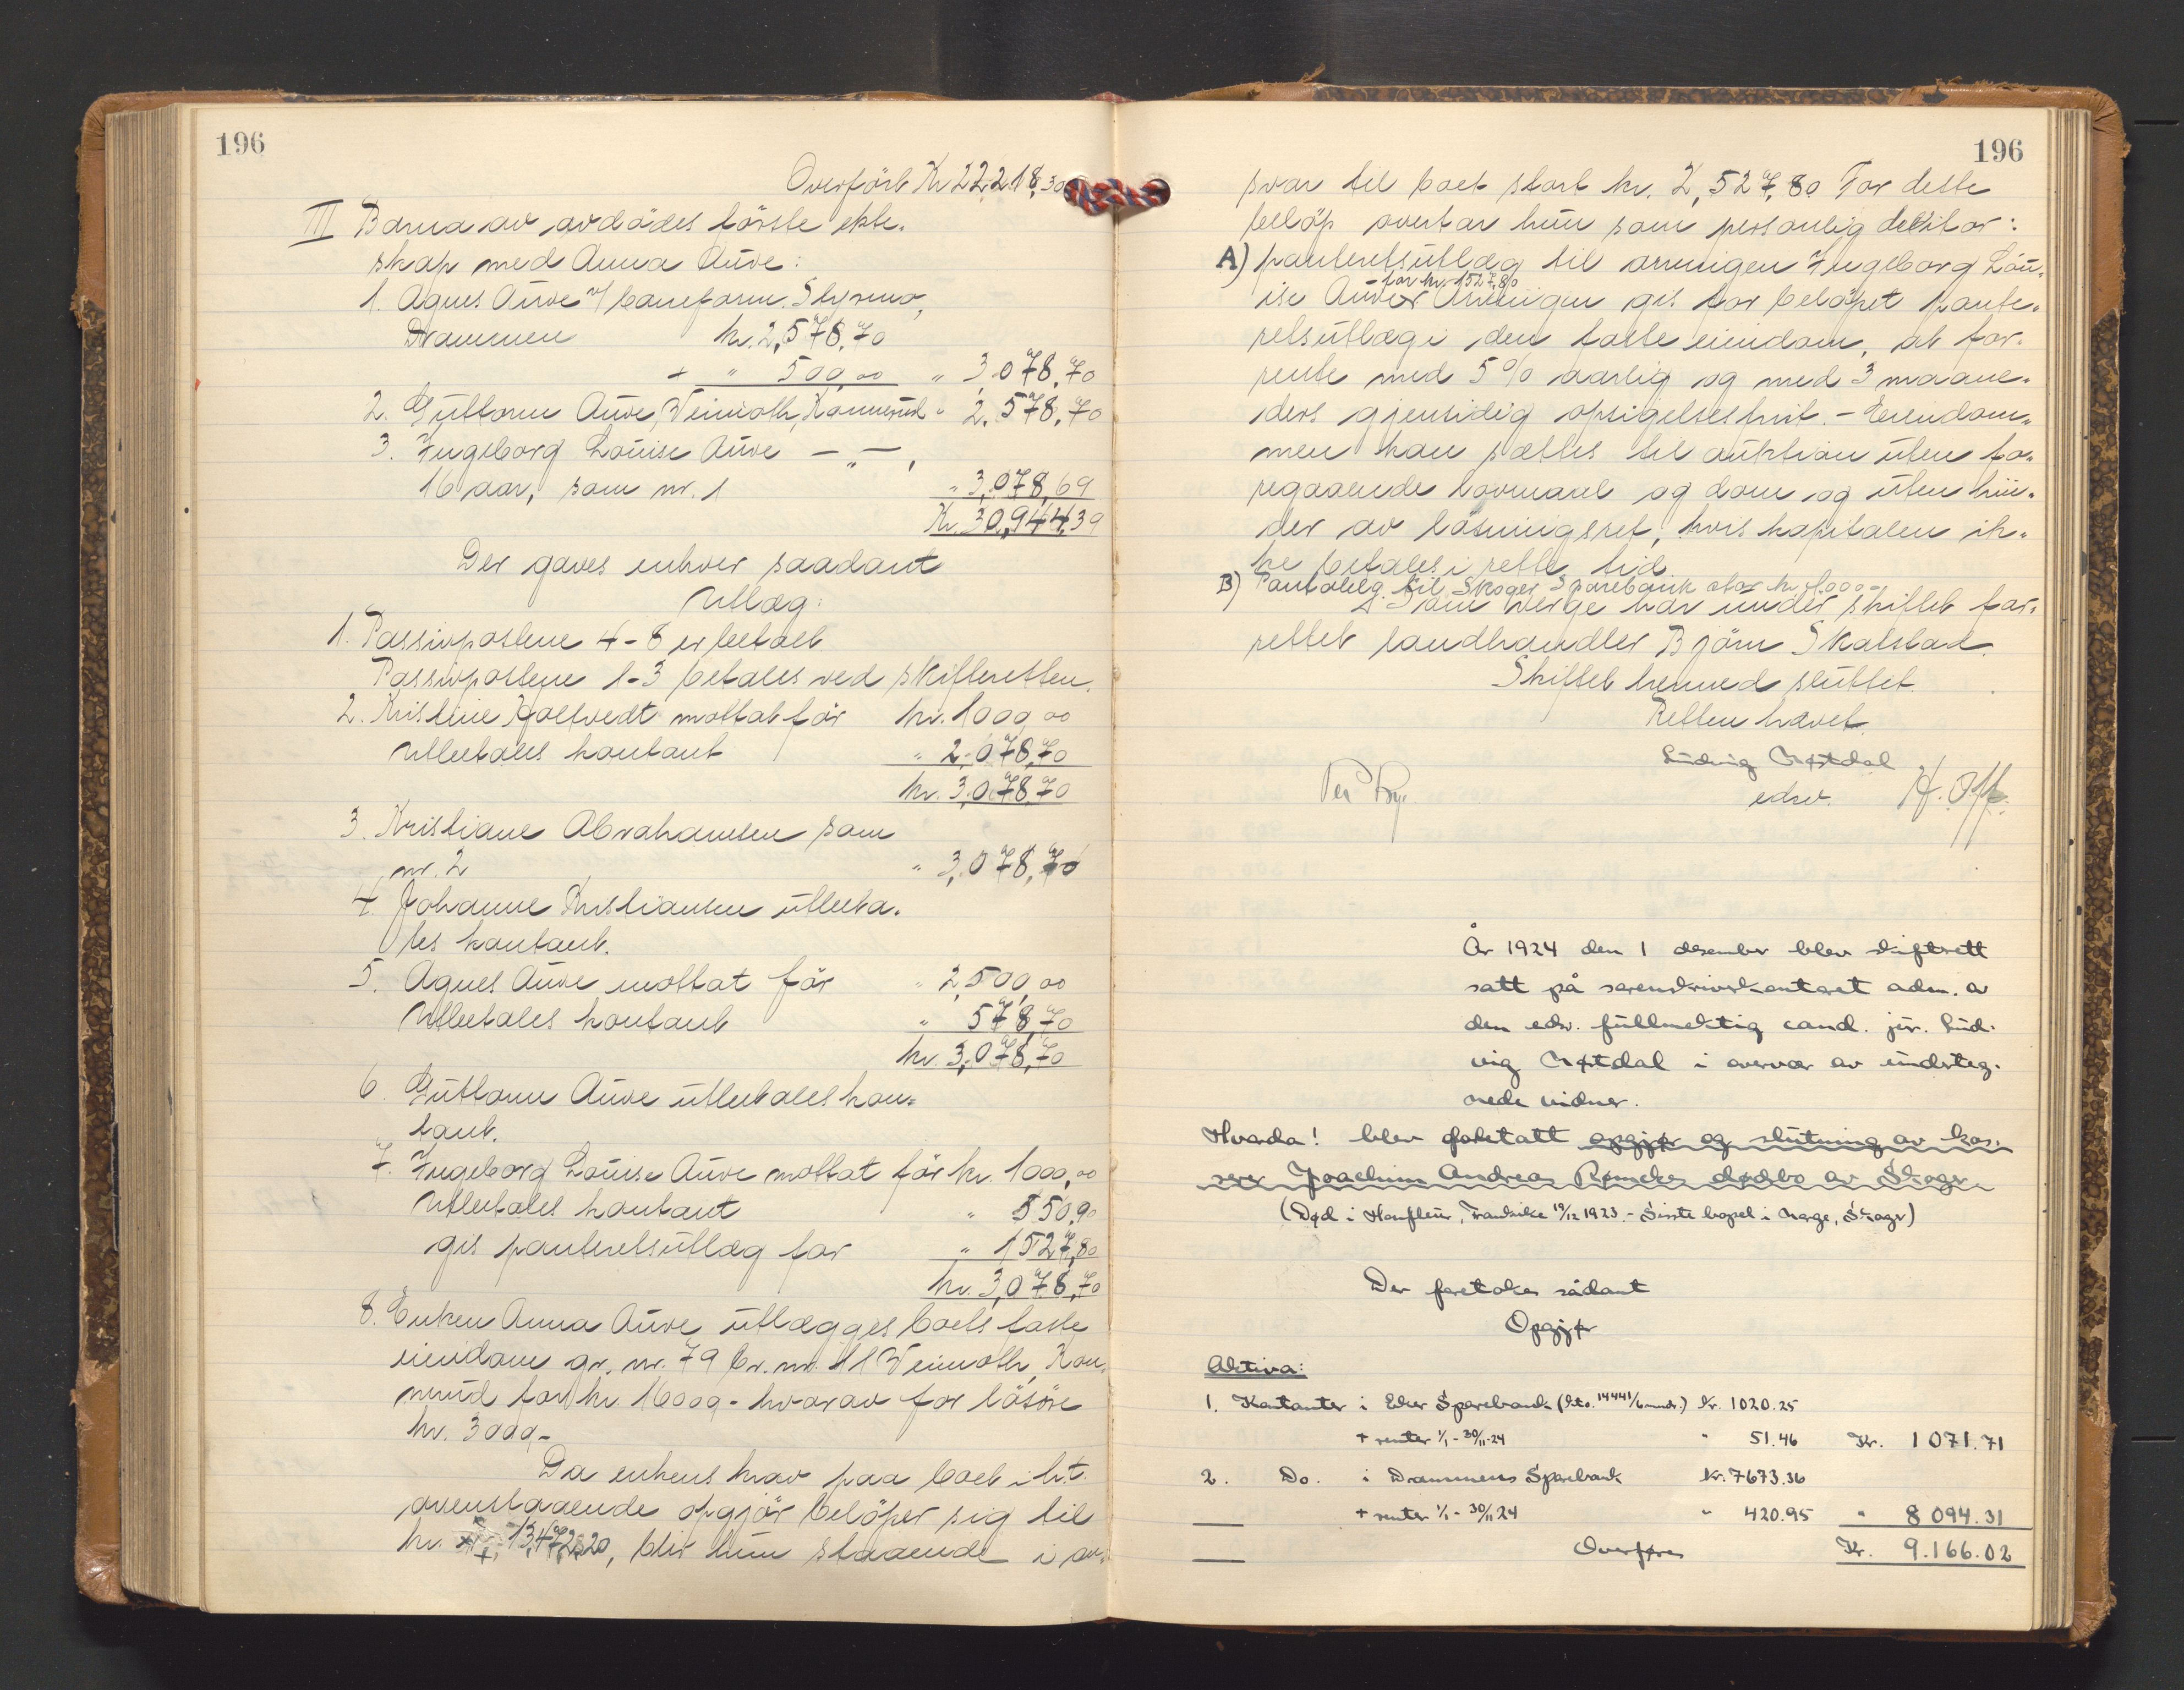 196
Overført Kr 22,218,30
III Barna av avdødes første ekte-
skap med Anna Auve:
1. Agnes Auve
Drammen kr. 2,578,70
+ " 500,00 " 3,078,70
2. Guttorm Auve, Veimoth, Konnerud " 2,578,70
3. Ingeborg Louise Auve — " —,
16 aar, som nr. 1 " 3,078,69
Kr. 30,944,39
Der gaves enhver saadant
Utlæg:
1. Passivpostene 4-8 er betalt
Passivpostene 1-3 betales ved skifteretten.
2. Kristine mottat før kr. 1000,00
Utbetales kontant " 2,078,70
kr. 3,078,70
3. Kristiane Abrahamsen som
nr. 2 " 3,078,70
4. Johanne Kristiansen utbeta-
les kontant.
5. Agnes Auve mottat før " 2,500,00
Utbetales kontant " 578,70
kr. 3,078,70
6. Guttorm Auve utbetales kon-
tant.
7. Ingeborg Louise Auve mottat før kr. 1000,00
Utbetales kontant " 550,90
gis panteretsutlæg for " 1527,80
kr. 3,078,70
8. Enken Anna Auve utlægges boets faste
eiendom gr. nr. 79 br. nr. 11 Veimoth, Kon-
nerud for kr. 16000,- hvorav for løsøre
kr. 3000,-
Da enkens krav paa boet i h.t.
ovenstaaende opgjør beløper sig til
kr. 13,472,20, blir hun staaende i an-
196
svar til boet stort kr. 2,527,80 For dette
beløp overtar hun som personlig debitor:
A) panteretsutlæg til arvingen Ingeborg Lou-
for kr. 1527,80
ise Auve. Arvingen gis for beløpet pante-
retsutlæg i den faste eiendom, at for-
rente med 5% aarlig og med 3 maane-
ders gjensidig opsigelsesfrist. - Eiendom-
men kan sættes til auktion uten fo-
regaaende lovmaal og dom og uten hin-
der av løsningsret, hvis kapitalen ik-
ke betales i rette tid.
B) Pantobl. til Skoger Sparebank stor kr. 1.000,-
Som verge har under skiftet for-
rettet landhandler Bjørn Skalstad.
Skiftet hermed sluttet.
Retten hævet.
Ludvig Mostdal
edsv.
År 1924 den 1 desember blev skifterett
satt på sorenskriverkontoret adm. av
den edsv. fullmektig cand. jur. Lud-
vig Mostdal i overvær av underteg-
nede vidner.
Hvorda! blev foretatt opgjør og slutning av kas-
serer Joachim Andreas dødsbo av Skoger
(Død i Honfleur, Frankrike 19/12 1923. - Siste bopel i Norge, Skoger)
Der foretokes sådant
Opgjør
Aktiva:
1. Kontanter i Eker Sparebank (kto. 14441/6 mndr.) kr. 1020.25
+ renter 1/1 - 30/11-24 " 51.46 Kr. 1 071.71
2. Do. i Drammens Sparebank kr. 7673.36
+ renter 1/1 - 30/11 24 " 420.95 " 8 094.31
Overføres Kr. 9.166.02